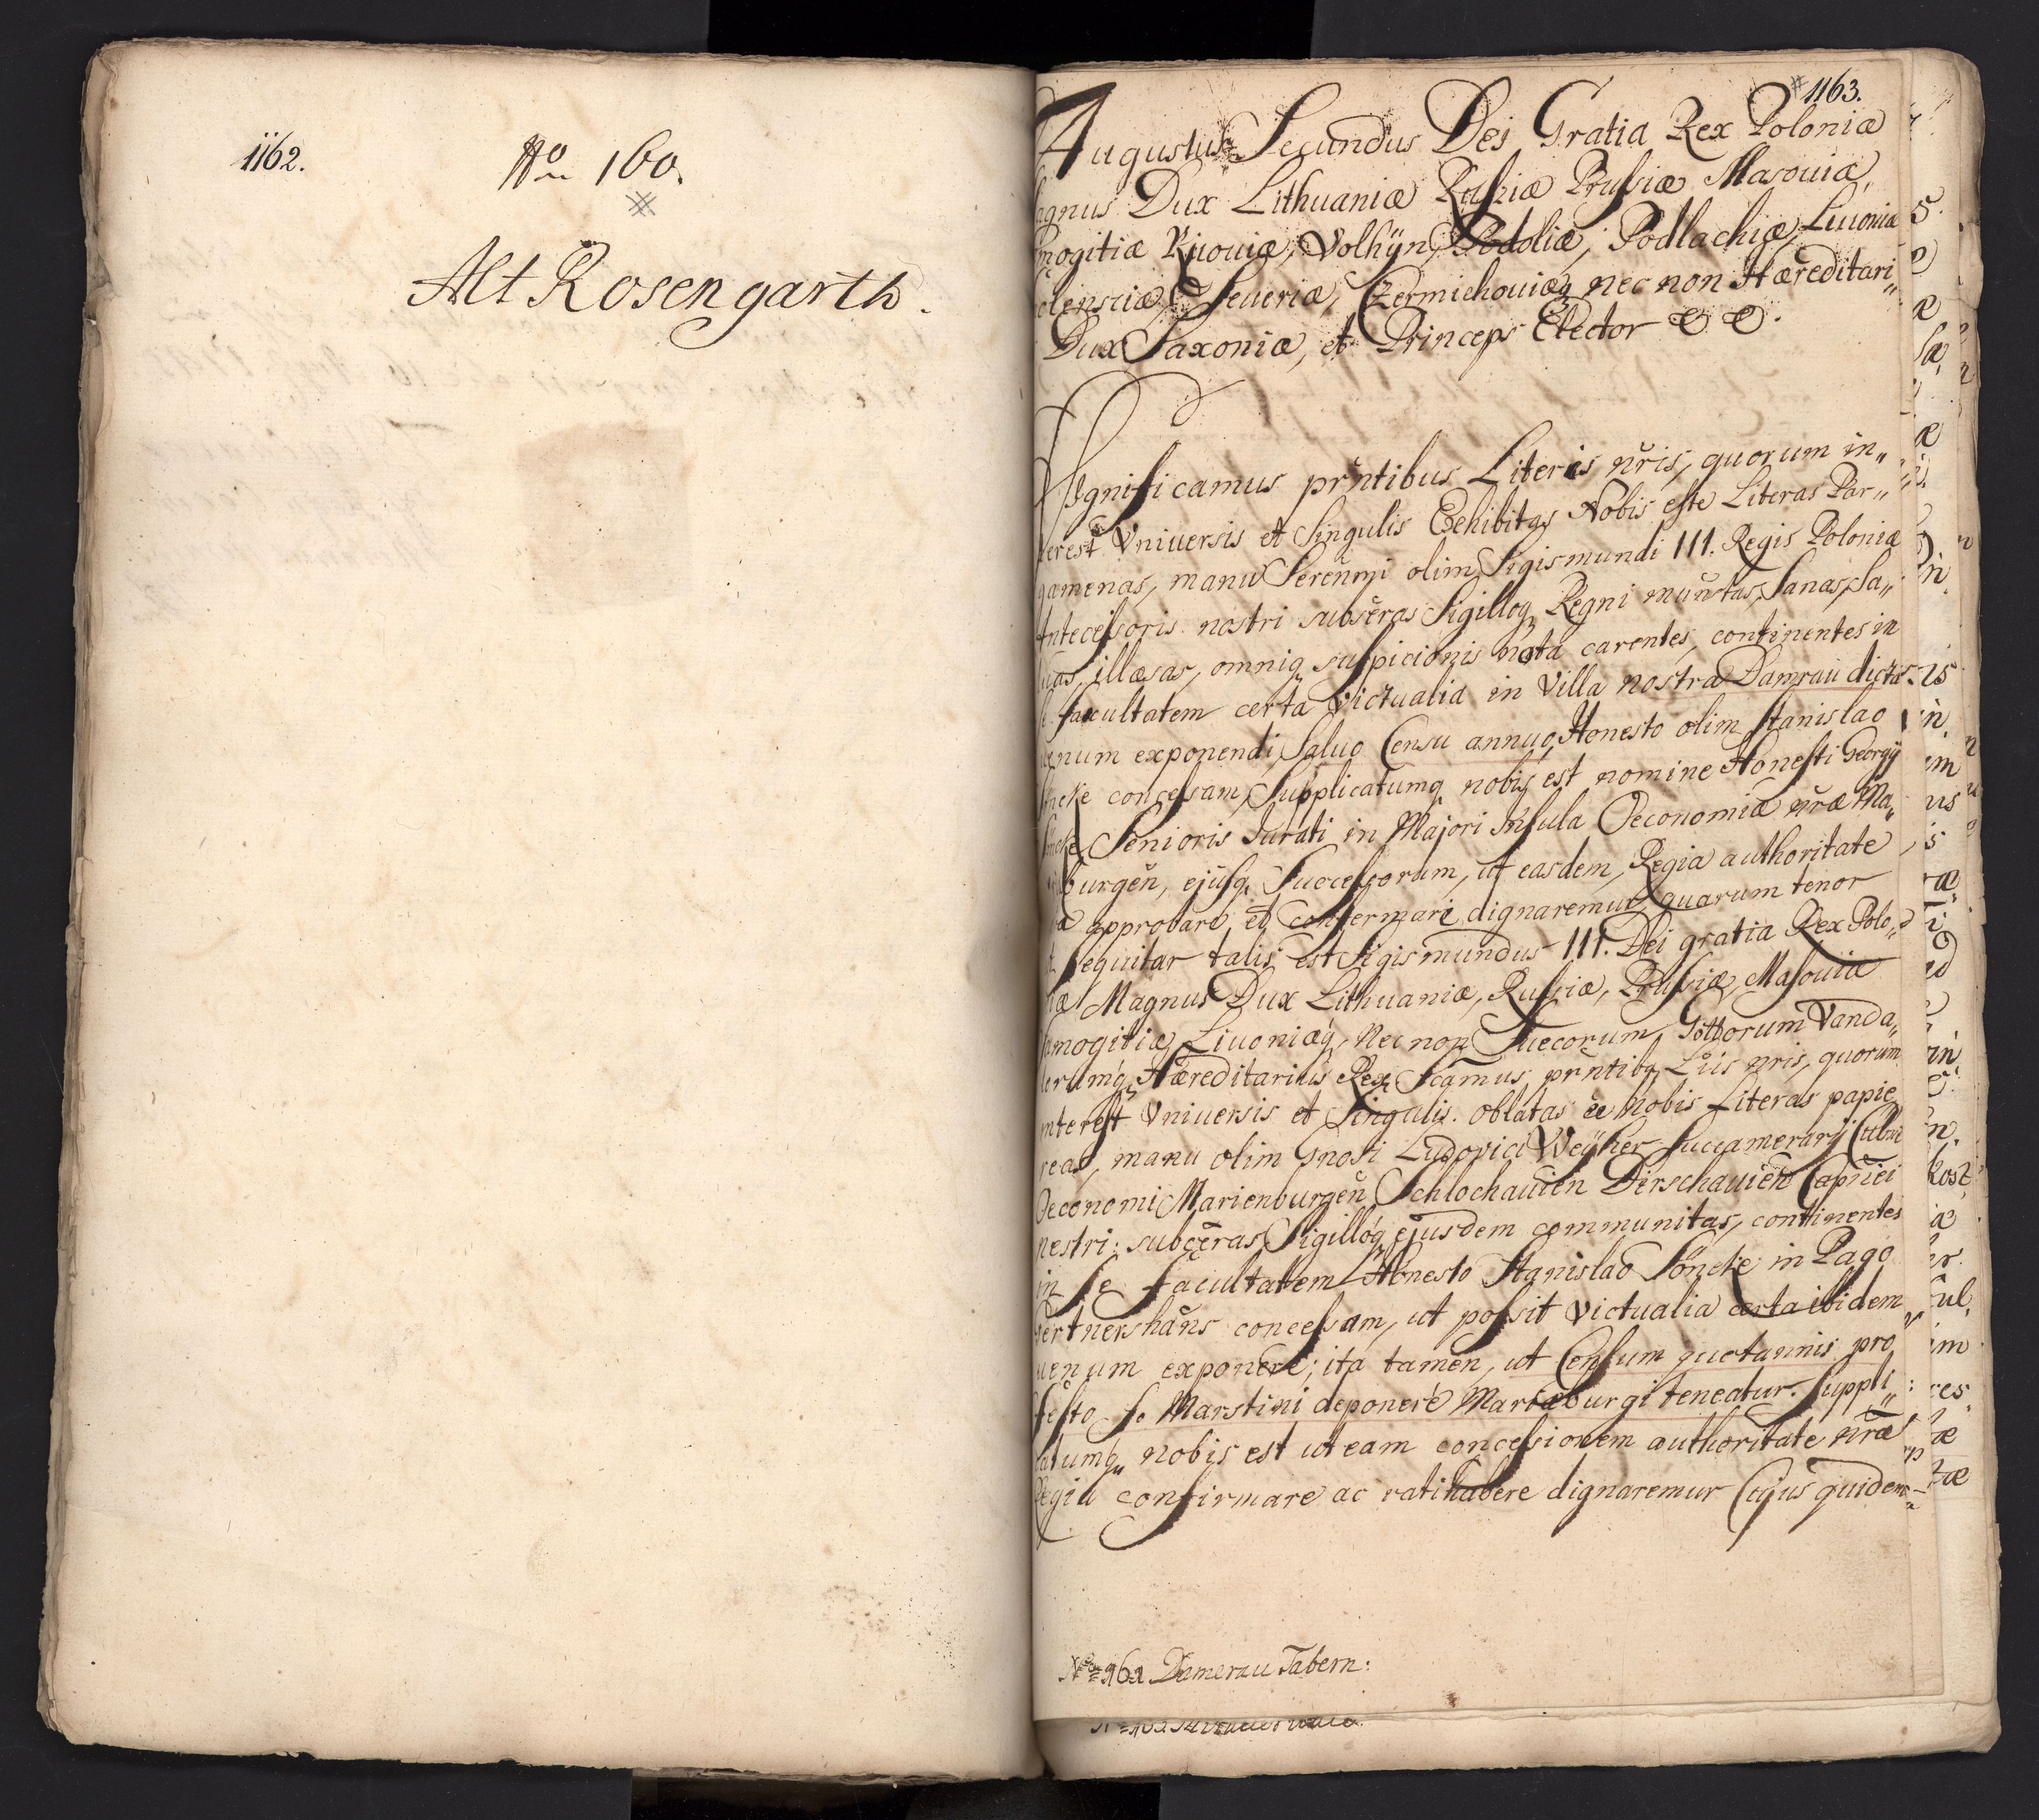 1162.
No 160.
Alt Rosengarth.
1163.
Augustus Secundus Dei Gratia Rex Poloniæ
agnus Dux Lithuaniæ Rußiæ Prußiæ Masouiæ,
mogitiæ Kijouiæ, Volhÿn, Podoliæ, Podlachiæ, Liuoniæ
olensciæ, Seueriæ, Czermichouiæq nec non Hæreditari„
Dux Saxoniæ, et Princeps Elector & &.
Significamus prñtibus Literis nr̃is, quorum in„
terest Vniuersis et Singulis Exhibitas Nobis eße Literas Par„
gamenas, manu Sereñmi olim Sigismundi III. Regis Poloniæ
Anteceßoris nostri subscr̃as Sigilloq Regni muñitas, Sanas, Sa„
luas, illæsas, omniq suspicionis nota carentes, continentes in
se facultatem certa Victualia in Villa nostra Damrau dicta
uenum exponendi, Saluo Censu annuo, Honesto olim Stanislao
ncke conceßam, Supplicatumq nobis est nomine Honesti Georgÿ
ncke Senioris Jurati in Majori Insula Oeconomiæ nr̃æ Ma„
burgeñ, ejusq Succeßorum, ut easdem, Regia authoritate
a approbare et confermari dignaremur, quarum tenor
t sequitur talis est Sigismundus III. Dei gratia Rex Polo„
iæ Magnus Dux Lithuaniæ, Rußiæ, Prußiæ, Masouiæ
amogitiæ, Liuoniæq, Nec non Suecorum, Gottorum Vanda„
lorumq Hæreditarius Rex Scamus prñtibq Lr̃is nr̃is, quorum
interest Vniuersis et Singulis. oblatas ee̅ Nobis Literas papie
reas, manu olim Gnosi Ludovici Weÿher Succamerarÿ Culm
Oeconomi Marienburgeñ Schlochauien Dirschauieñ Capñei
nestri: subscr̃as Sigilloq ejusdem communitas, conttinentes
in se facultatem Honesto Stanislao Söncke in Pago
ertnershãns conceßam, ut poßit Victualia certa ibidem
uenum exponere; ita tamen, ut Censum quotannis pro
festo S. Marstini deponere Mariæburgi teneatur. Suppli„
catumq nobis est ut eam conceßionem authoritate nr̃a
Regia confirmare ac ratihabere dignaremur Cujus quidem
No 161 Damerau Tabern: